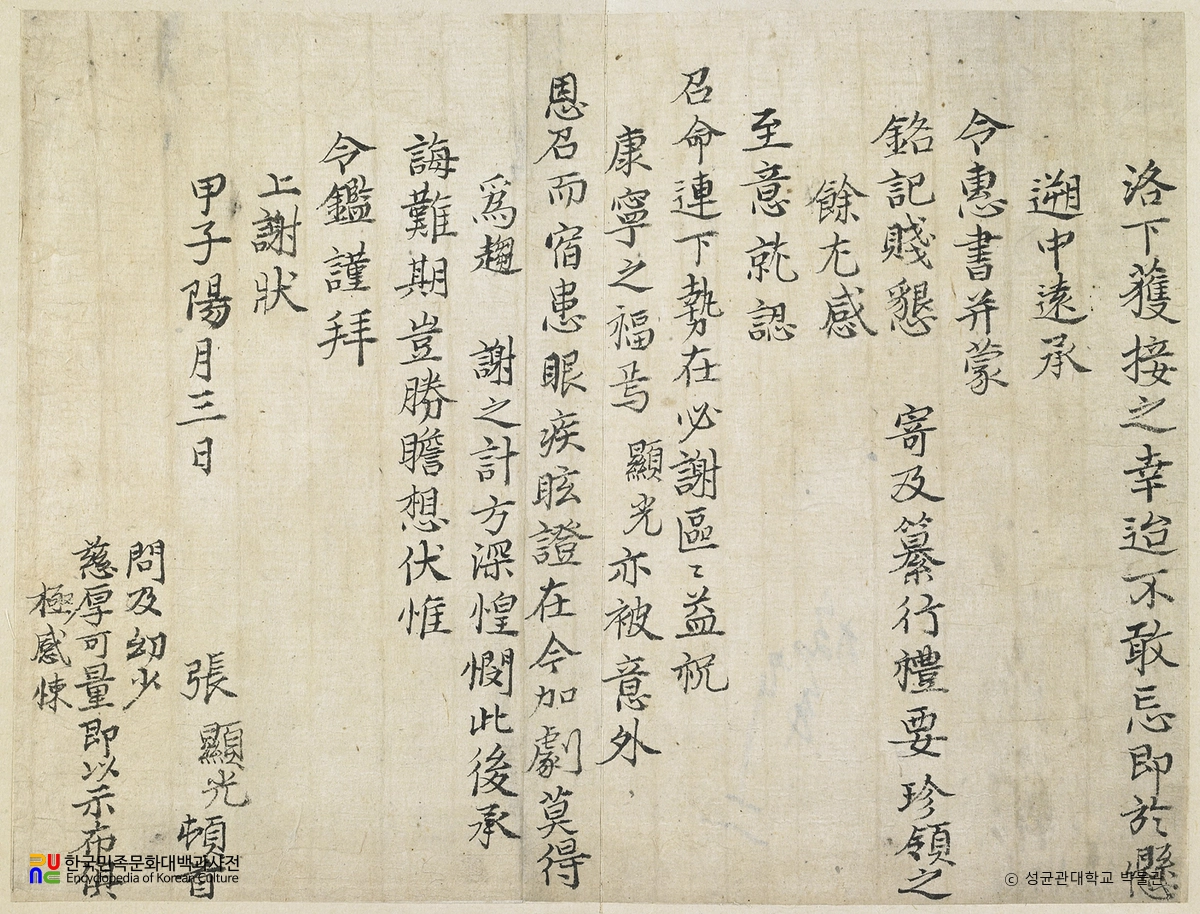 洛下獲接之幸迨不敢忘即於懸
遡中遠承
令惠書并蒙
銘記賤懇 寄及纂行禮要珍領之
餘尤感
至意就認
召命連下勢在必謝區〻益祝
康寧之福焉 顯光亦被意外
恩召而宿患眼疾眩證在今加劇莫得
爲趨 謝之計方深惶憫此後承
誨難期豈勝瞻想伏惟
令鑑謹拜
上謝狀
甲子陽月三日
張 顯光 頓首
問及幼少
慈厚可量即以示布
極感悚
한국민족문화대백과사전
Encyclopedia of Korean Culture
ⓒ 성균관대학교 박물관